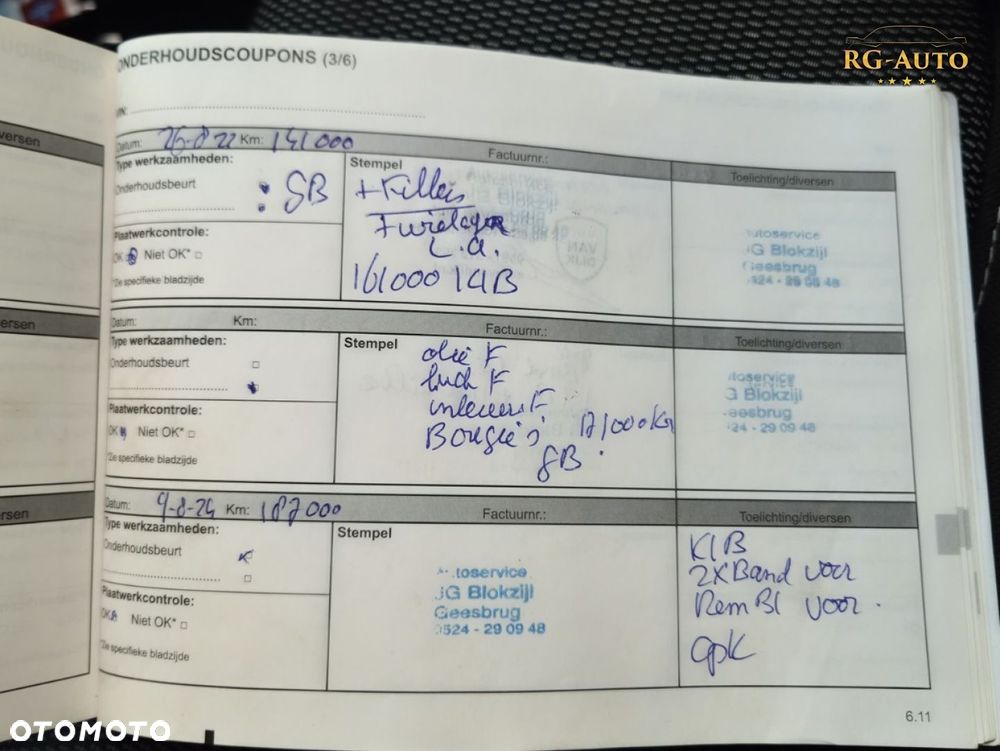 RG-AUTO
ONDERHOUDSCOUPONS (3/6)
Datum: 26-8 22 Km: 141000 Factuurnr.:
Type werkzaamheden: Stempel Toelichting/diversen
Onderhoudsbeurt GB + Filters
+ wiellager
L.A.
161000 KLB
Plaatwerkcontrole:
OK Niet OK*
*Zie specifieke bladzijde
utoservice
JG Blokzijl
Geesbrug
0524 - 29 09 48
VAN
DIJK
Datum: Km: Factuurnr.:
Type werkzaamheden: Stempel Toelichting/diversen
Onderhoudsbeurt
olie F
lucht F
interieur F
Bougie's 171000 Km
GB.
Plaatwerkcontrole:
OK Niet OK*
*Zie specifieke bladzijde
utoservice
G Blokzijl
eesbrug
24 - 29 09 48
Datum: 9-8-24 Km: 187000 Factuurnr.:
Type werkzaamheden: Stempel Toelichting/diversen
Onderhoudsbeurt
Plaatwerkcontrole:
OK Niet OK*
*Zie specifieke bladzijde
toservice
JG Blokzijl
Geesbrug
0524 - 29 09 48
KLB
2X Band voor
Rem Bl voor.
apk
ersen
ersen
ersen
6.11
OTOMOTO